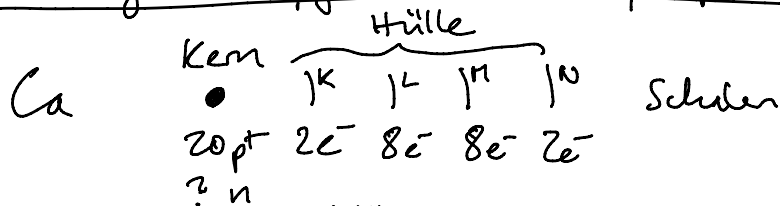 Hülle
Kern
Ca K L M N Schalen
20p⁺ 2e⁻ 8e⁻ 8e⁻ 2e⁻
? n